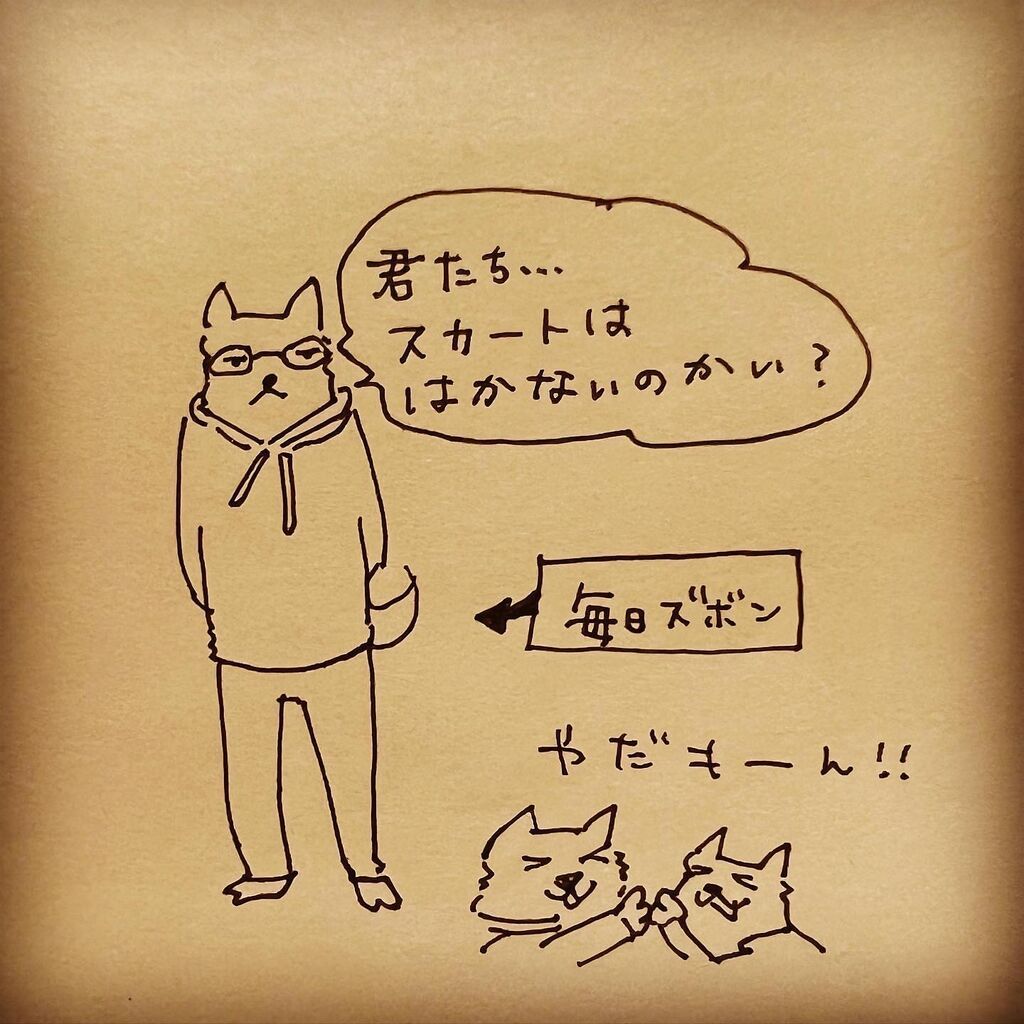 君たち…
スカートは
はかないのかい？
毎日ズボン
やだもーん!!